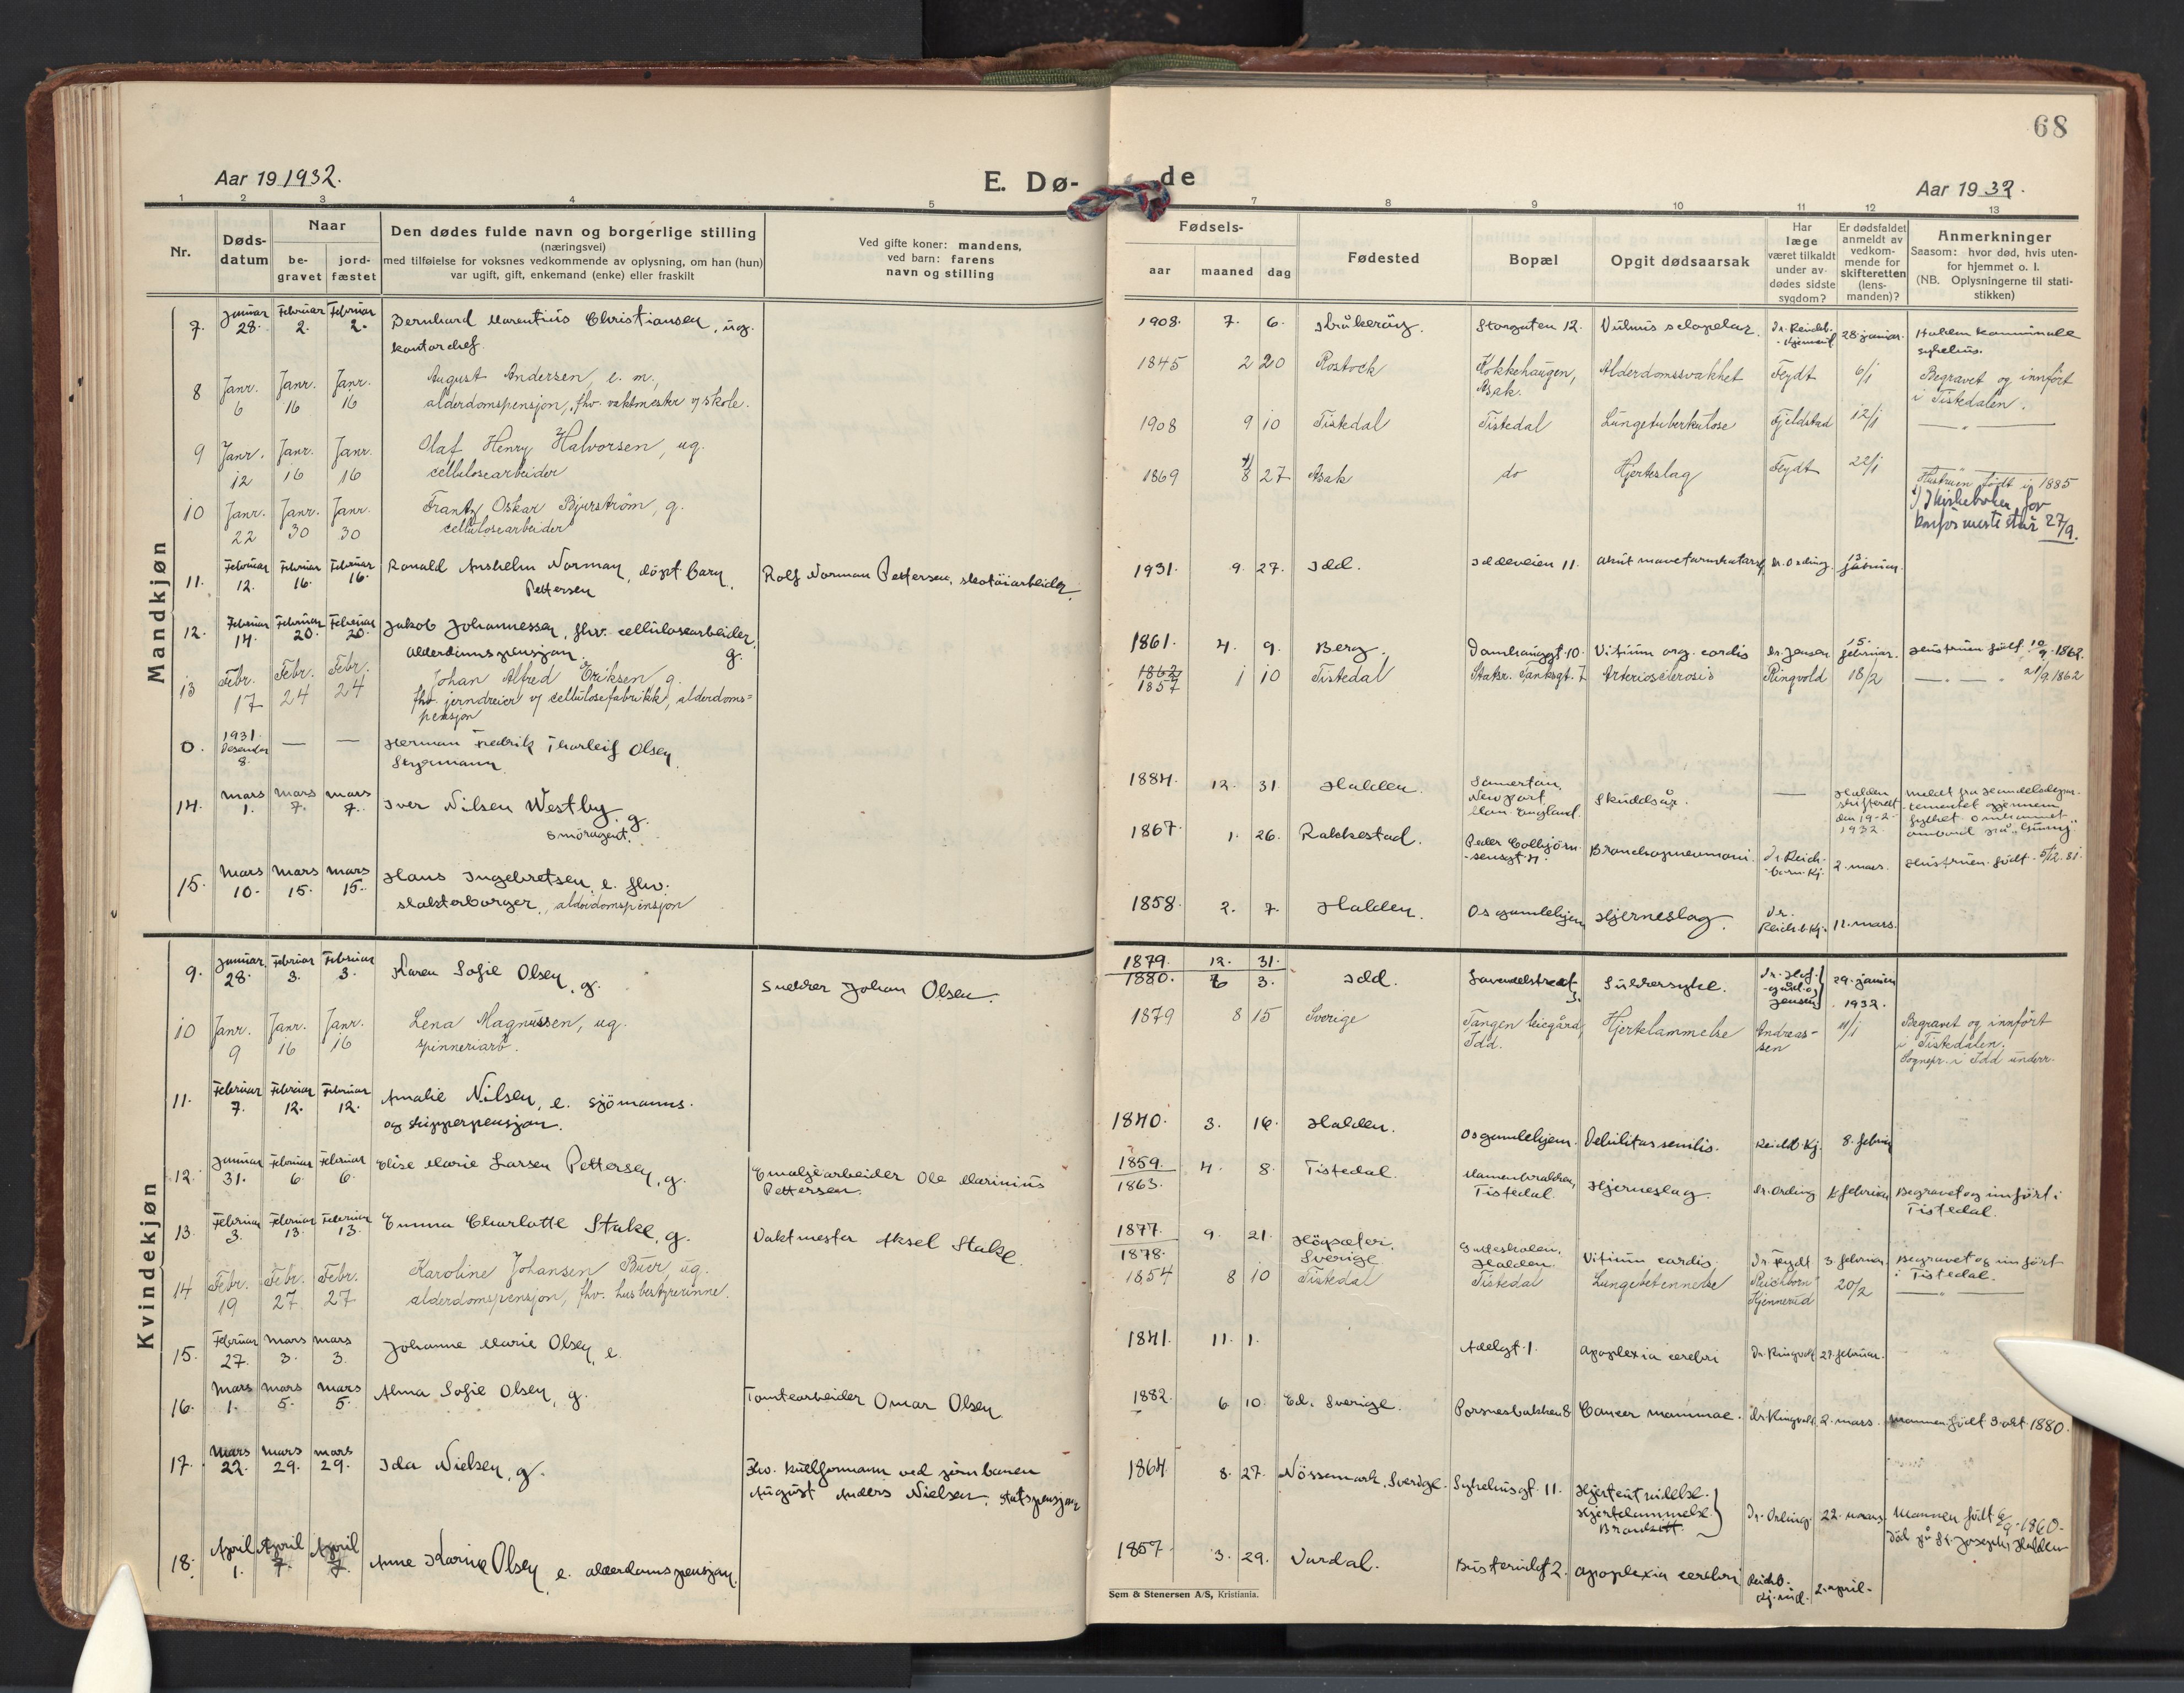 68
Aar 19 1932.
E. Dø-
de
Aar 1932.
1 2 3 4 5 7 8 9 10 11 12 13
Nr.
Døds-
datum
Naar
be-
gravet
jord-
fæstet
Den dødes fulde navn og borgerlige stilling
(næringsvei)
med tilføielse for voksnes vedkommende av oplysning, om han (hun)
var ugift, gift, enkemand (enke) eller fraskilt
Ved gifte koner: mandens,
ved barn: farens
navn og stilling
Fødsels-
aar maaned dag
Fødested
Bopæl
Opgit dødsaarsak
Har
læge
været tilkaldt
under av-
dødes sidste
sygdom?
Er dødsfaldet
anmeldt av
vedkom-
mende for
skifteretten
(lens-
manden)?
Anmerkninger
Saasom: hvor død, hvis uten-
for hjemmet o. l.
(NB. Oplysningerne til stati-
stikken)
Mandkjøn
7. Januar 28. Februar 2. Februar 2. Bernhard Marentius Christiansen, ug.
kontorchef.
1908. 7. 6. Storgaten 12. Vulnus sclopetar. 28. januar. Halden kommunale
sykehus.
8 Janr. 6 Janr. 16 Janr. 16 August Andersen, e. m.,
alderdomspensjon, fhv. vaktmester v/ skole.
1845 2 20 Rostock Kokkehaugen,
Asak. Alderdomssvakhet Feydt 6/1 Begravet og innført
i Tistedalen.
9 Janr. 12 Janr. 16 Janr. 16 Olaf Henry Halvorsen, ug.
cellulosearbeider
1908 9 10 Tistedal Tistedal Lungetuberkulose Fjeldstad 12/1 — „ —
10 Janr. 22 Janr. 30 Janr. 30 Frantz Oskar Bjurstrøm, g.
cellulosearbeider
1869 8 27 Asak do Hjerteslag Feydt 22/1 Hustruen født i 1885
1) I kirkeboken for
konfirmerte står 27/9.
11. Februar 12. Februar 16. Februar 16. Ronald Anshelm Norman, döpt barn.
Pettersen
Rolf Norman Pettersen, skotöiarbeider.
1931. 9. 27. Idd. Iddeveien 11. Akut mavetarmkatarrh Dr. Ording. 13
12. Februar 14. Februar 20. Februar 20. Jakob Johannessen, fhv. cellulosearbeider,
alderdomspensjon. g.
1861. 4. 9. Berg. Damhauggt. 10. Vitium org. cordis Dr. Jensen 15. februar. Hustruen født 1862.
13 Febr. 17 Febr. 24 Febr. 24 Johan Alfred Eriksen g.
fhv. jerndreier v/ cellulosefabrikk, alderdoms=
pensjon
1862
1857 1 10 Tistedal Statsr. Tanksgt. 7 Arteriosclerosis Ringvold 18/2 — „ — 21/9 1862
0. 1931. Desember 8. — — Herman Fredrik Thorleif Olsen
Styrmann.
1884. 12. 31 Halden. Newport,
England. Skuddsår. — Halden
skifterett
den 19-2-
1932
14. Mars 1. Mars 7. Mars 7. Iver Nilsen Westby. g.
Smöragent.
1867. 1. 26. Rakkestad. Peder Colbjörn-
sensgt. Bronchopneumoni. Dr. Reich-
born-Kj. 2. mars. Hustruen født 5/12. 81.
15. Mars 10. Mars 15. Mars 15. Hans Ingebretsen, e. fhv.
alderdomspensjon
1858. 2. 7. Halden. Os gamlehjem Hjerneslag. Dr.
Reichb. Kj. 11. mars.
Kvindekjøn
9. Januar 28. Februar 3. Februar 3. Karen Sofie Olsen, g. Snekker Johan Olsen.
1879. 12. 31.
1880. 6 3. Idd. Sukkersyke. 29. januar
1932.
10 Janr. 9 Janr. 16 Janr. 16 Lena Magnussen, ug.
spinneriarb.
1879 8 15 Sverige Tangen leiegård,
Idd. Hjertelammelse Andreas-
sen 11/1 Begravet og innført
i Tistedalen.
Sognepr. i Idd underr.
11. Februar 7. Februar 12. Februar 12. Amalie Nilsen, e. sjömanns-
og skipperpensjon.
1840. 3. 16. Halden. Os gamlehjem. Debilitas senilis. Reichb. Kj. 8. februar
12. Januar 31. Februar 6. Februar 6. Elise Marie Larsen Pettersen, g. Emaljearbeider Ole Marinius
Pettersen.
1859.
1863. 4. 8. Tistedal. Tistedal. Hjerneslag. Dr. Ording februar Begravet og innført i
Tistedal.
13. Februar 3. Februar 13. Februar 13. Emma Charlotte Stake, g. Vaktmester Aksel Stake
1877.
1878. 9. 21. Högsäter,
Sverige Gutteskolen,
Halden. Vitium cordis. Dr. Feydt 3. februar. Begravet og innført
i Tistedal.
14 Febr. 19 Febr. 27 Febr. 27 Karoline Johansen Buer, ug.
alderdomspensjon, fhv. husbestyrerinne.
1854 8 10 Tistedal Tistedal Lungebetennelse Reichborn
Kjennerud 20/2 — „ —
15. Februar 27. Mars 3. Mars 3. Johanne Marie Olsen, e.
1841. 11. 1. Adelgt. 1. Apoplexia cerebri Dr. Ringvold 27. februar.
16. Mars 1. Mars 5. Mars 5. Alma Sofie Olsen, g. Tomtearbeider Omar Olsen
1882. 6 10. Ed, Sverige. Porsnesbakken 8 Cancer mammae. Dr. Ringvold. 2. mars. Mannen født 3. okt. 1880.
17. Mars 22. Mars 29. Mars 29. Ida Nielsen, g. Fhv. kullformann ved jernbanen
August Anders Nielsen, statspensjon
1864 8. 27. Nössemark, Sverige. Sykehusgt. 11. Hjerteutvidelse.
Hjertelammelse.
Dr. Ording. 22. mars. Mannen født 1860.
Död på St. Joseph, Halden
18. April 1. April 7. April 7. Anne Karine Olsen, e. alderdomspensjon.
1857 3. 29. Vardal. Busterudgt 2. Apoplexia cerebri Reichb.
Kj.rud. 2. april.
Sem & Stenersen A/S, Kristiania.